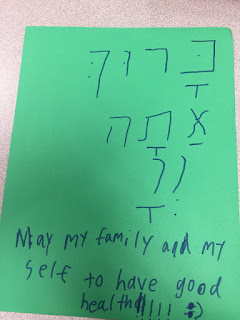 בָּרוּךְ
אַתָּה
יְיָ
May my family and my
self to have good
health!!!!! :)